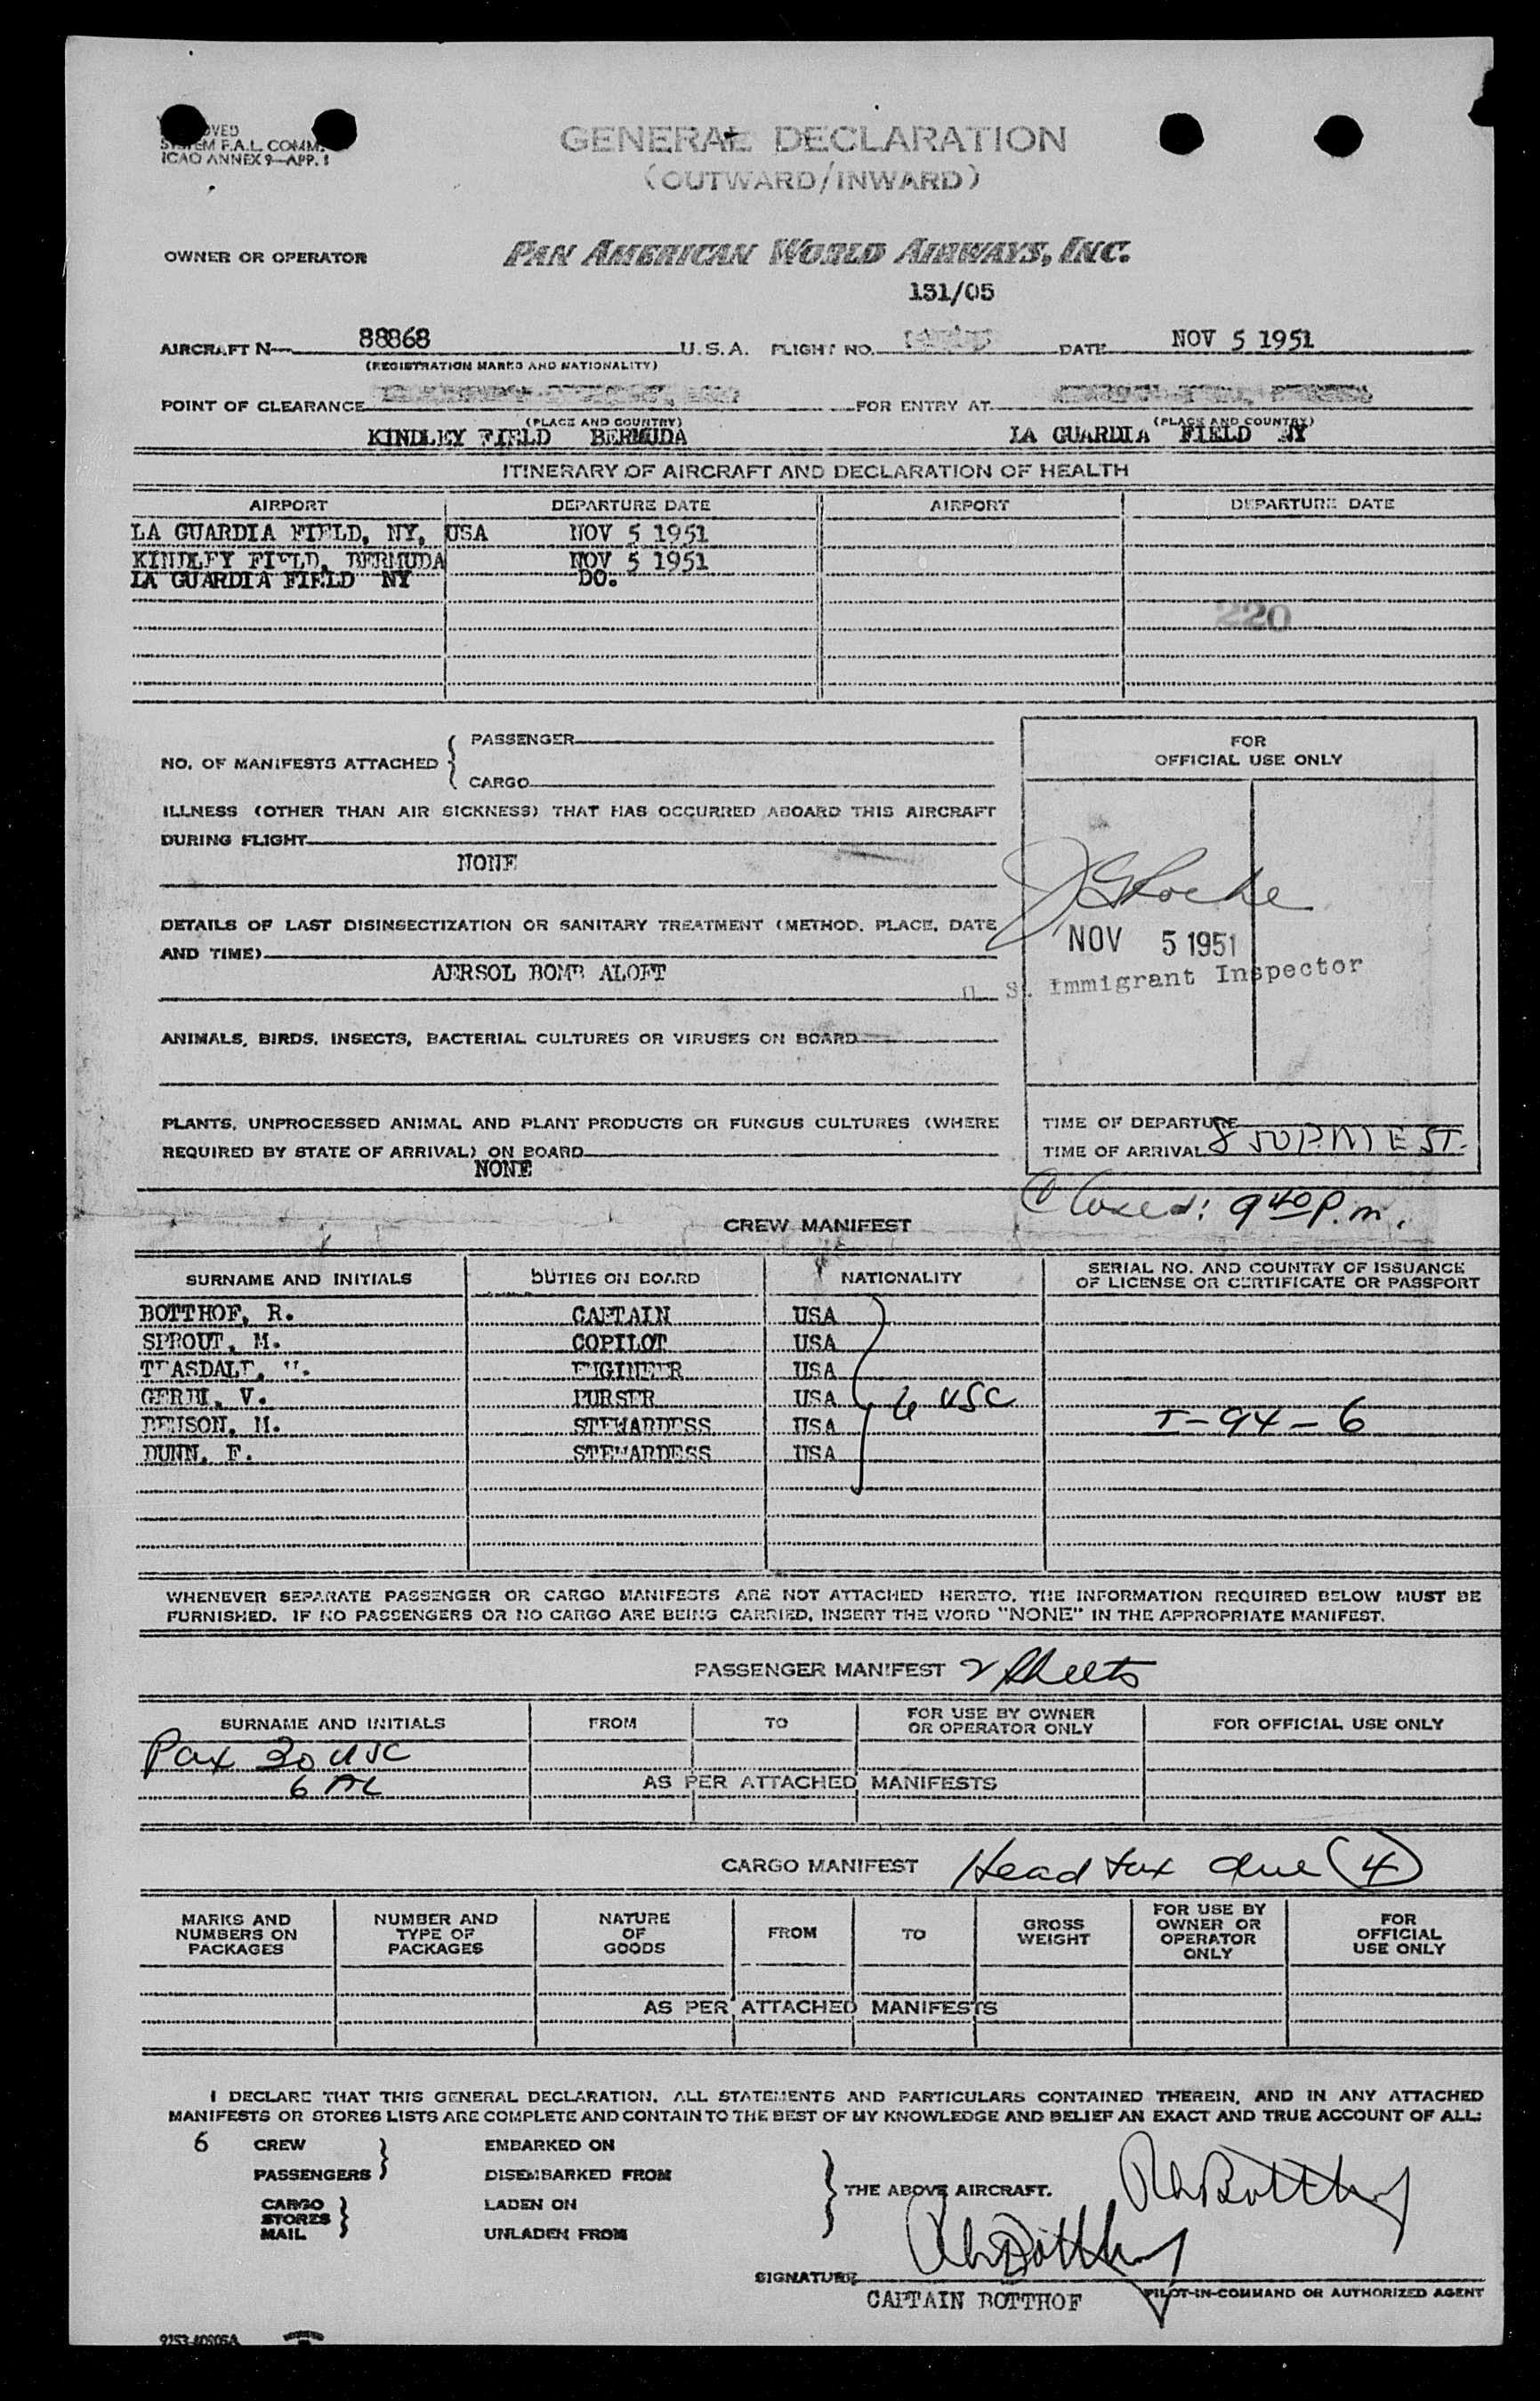 SYSTEM F.A.L. COMM.
ICAO ANNEX 9—APP. 1
GENERAL DECLARATION
(OUTWARD/INWARD)
OWNER OR OPERATOR PAN AMERICAN WORLD AIRWAYS, INC.
131/05
AIRCRAFT N— 88868 U.S.A. FLIGHT NO. DATE NOV 5 1951
(REGISTRATION MARKS AND NATIONALITY)
POINT OF CLEARANCE FOR ENTRY AT
(PLACE AND COUNTRY) (PLACE AND COUNTRY)
KINDLEY FIELD BERMUDA LA GUARDIA FIELD NY
ITINERARY OF AIRCRAFT AND DECLARATION OF HEALTH
AIRPORT DEPARTURE DATE AIRPORT DEPARTURE DATE
LA GUARDIA FIELD, NY, USA NOV 5 1951
KINDLEY FIELD, BERMUDA NOV 5 1951
LA GUARDIA FIELD NY DO.
220
NO. OF MANIFESTS ATTACHED
PASSENGER
CARGO
ILLNESS (OTHER THAN AIR SICKNESS) THAT HAS OCCURRED ABOARD THIS AIRCRAFT
DURING FLIGHT
NONE
DETAILS OF LAST DISINSECTIZATION OR SANITARY TREATMENT (METHOD, PLACE, DATE
AND TIME)
AERSOL BOMB ALOFT
ANIMALS, BIRDS, INSECTS, BACTERIAL CULTURES OR VIRUSES ON BOARD
PLANTS, UNPROCESSED ANIMAL AND PLANT PRODUCTS OR FUNGUS CULTURES (WHERE
REQUIRED BY STATE OF ARRIVAL) ON BOARD
NONE
FOR
OFFICIAL USE ONLY
J G Roche
NOV 5 1951
U. S. Immigrant Inspector
TIME OF DEPARTURE
TIME OF ARRIVAL 8 50 P.M EST.
Closed: 9 40 P.m.
CREW MANIFEST
SURNAME AND INITIALS DUTIES ON BOARD NATIONALITY SERIAL NO. AND COUNTRY OF ISSUANCE
OF LICENSE OR CERTIFICATE OR PASSPORT
BOTTHOF, R. CAPTAIN USA
SPROUT, M. COPILOT USA
TEASDALE, ENGINEER USA
GERBI, V. PURSER USA 6 USC
BENSON, M. STEWARDESS USA I-94-6
DUNN, F. STEWARDESS USA
WHENEVER SEPARATE PASSENGER OR CARGO MANIFESTS ARE NOT ATTACHED HERETO, THE INFORMATION REQUIRED BELOW MUST BE
FURNISHED. IF NO PASSENGERS OR NO CARGO ARE BEING CARRIED, INSERT THE WORD "NONE" IN THE APPROPRIATE MANIFEST.
PASSENGER MANIFEST 2 sheets
SURNAME AND INITIALS FROM TO FOR USE BY OWNER
OR OPERATOR ONLY FOR OFFICIAL USE ONLY
Pax 30 USC
6 AL AS PER ATTACHED MANIFESTS
CARGO MANIFEST Head tax due (4)
MARKS AND
NUMBERS ON
PACKAGES
NUMBER AND
TYPE OF
PACKAGES
NATURE
OF
GOODS
FROM
TO
GROSS
WEIGHT
FOR USE BY
OWNER OR
OPERATOR
ONLY
FOR
OFFICIAL
USE ONLY
AS PER ATTACHED MANIFESTS
I DECLARE THAT THIS GENERAL DECLARATION, ALL STATEMENTS AND PARTICULARS CONTAINED THEREIN, AND IN ANY ATTACHED
MANIFESTS OR STORES LISTS ARE COMPLETE AND CONTAIN TO THE BEST OF MY KNOWLEDGE AND BELIEF AN EXACT AND TRUE ACCOUNT OF ALL:
6 CREW EMBARKED ON
PASSENGERS DISEMBARKED FROM
THE ABOVE AIRCRAFT.
CARGO LADEN ON
STORES
MAIL UNLADEN FROM
SIGNATURE
CAPTAIN BOTTHOF PILOT-IN-COMMAND OR AUTHORIZED AGENT